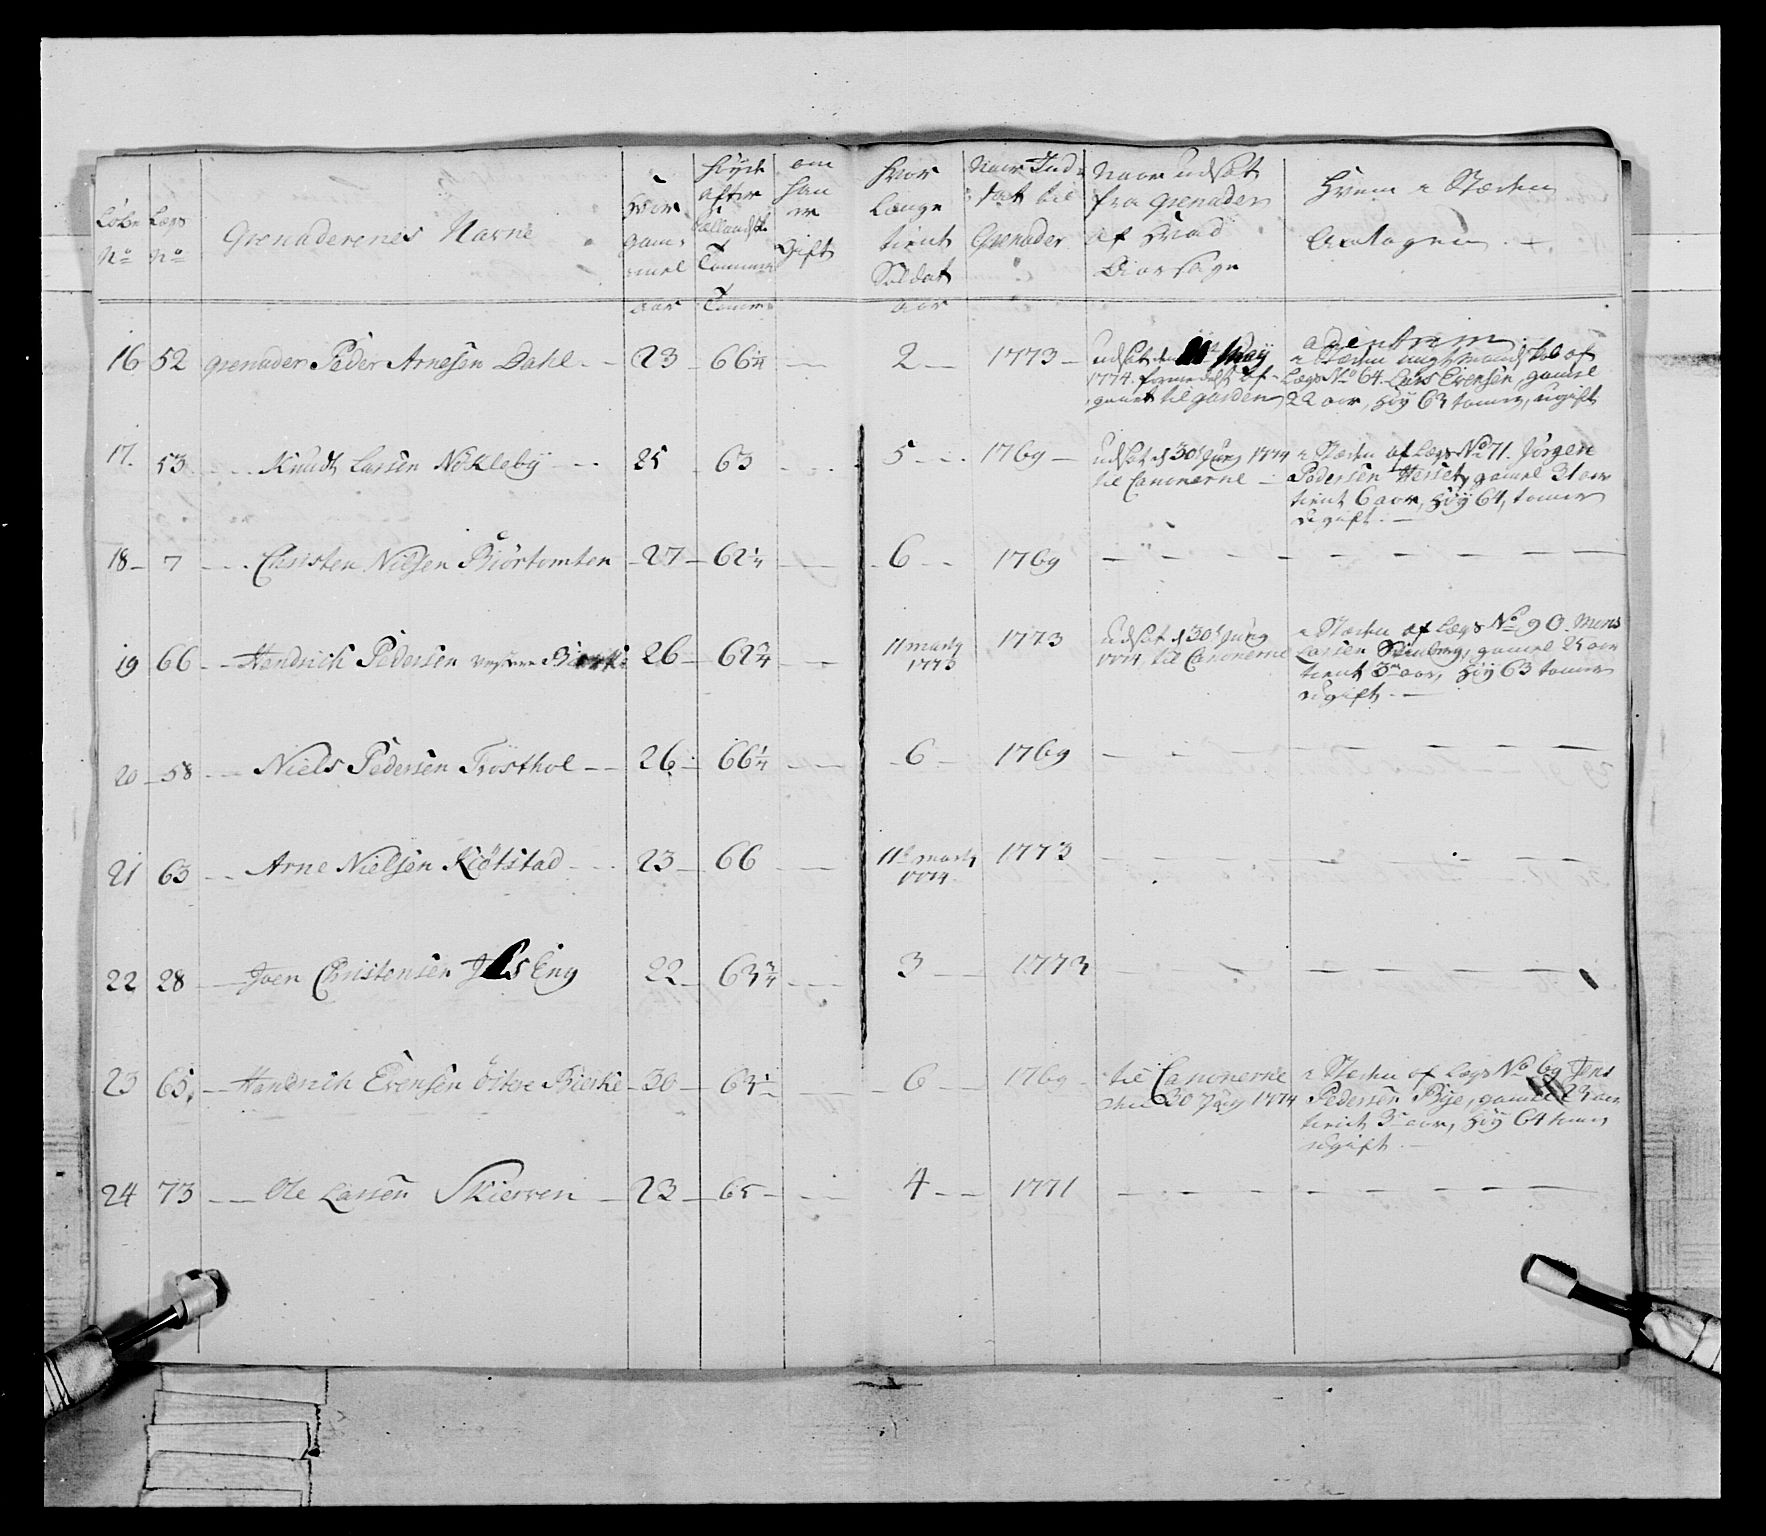 Løbe N° Lægs N° Grenaderenes Navne Hvor gammel aar Høyde efter Sællandsk Tomme Tomer om han er Gift Hvor længe tient Soldat aar Naar Indsat til Grenader Naar udsat fra Grenader af Hvad Aarsage Hvem i Stæden Antagen
16 52 Grenader Peder Arnesen Dahl 23 66 1/4 2 1773 udsat den May
1774 formedelst af-
gaaet til garden
i Stæden af
Lægs No 64 Lars Evensen, gamel
22 aar, Høy 63 tomer, ugift
17. 53 Knudt Larsen Nökleby 25 63 5 1769 udsat d 30t Juny 1774
til Canonerne
i Stæden af Lægs No 71. Jörgen
Pedersen Hesset, gamel 31 aar
tient 6 aar, Høy 64, tomer
ugift.
18 7 Christen Nilsen Biörtomten 27 62 1/4 6 1769
19 66 Hendrich Pedersen 26 62 3/4 11 marty
1773 1773 udsat d 30t Juny
1774 til Canonerne
i Stæden af Lægs No 90. Mons
Larsen gamel 25 aar
tient 3 aar, Høy 63 tomer
ugift.
20 58 Niels Pedersen Trösthol 26 66 1/4 6 1769
21 63 Arne Nielsen Kiötstad 23 66 11t marty
1774 1773
22 28 Joen Christensen Eng 22 63 3/4 3 1773
23 65. Hendrich Evensen östre Bierke 30 63 1/2 6 1769 til Canonerne
den 30 Juny 1774
i Stæden af Lægs No 69 Jens
Pedersen Bye, gamel 23 aar
tient 3 aar, Høy 64 tomer
ugift.
24 73 Ole Larsen Skierven 23 65 4 1771